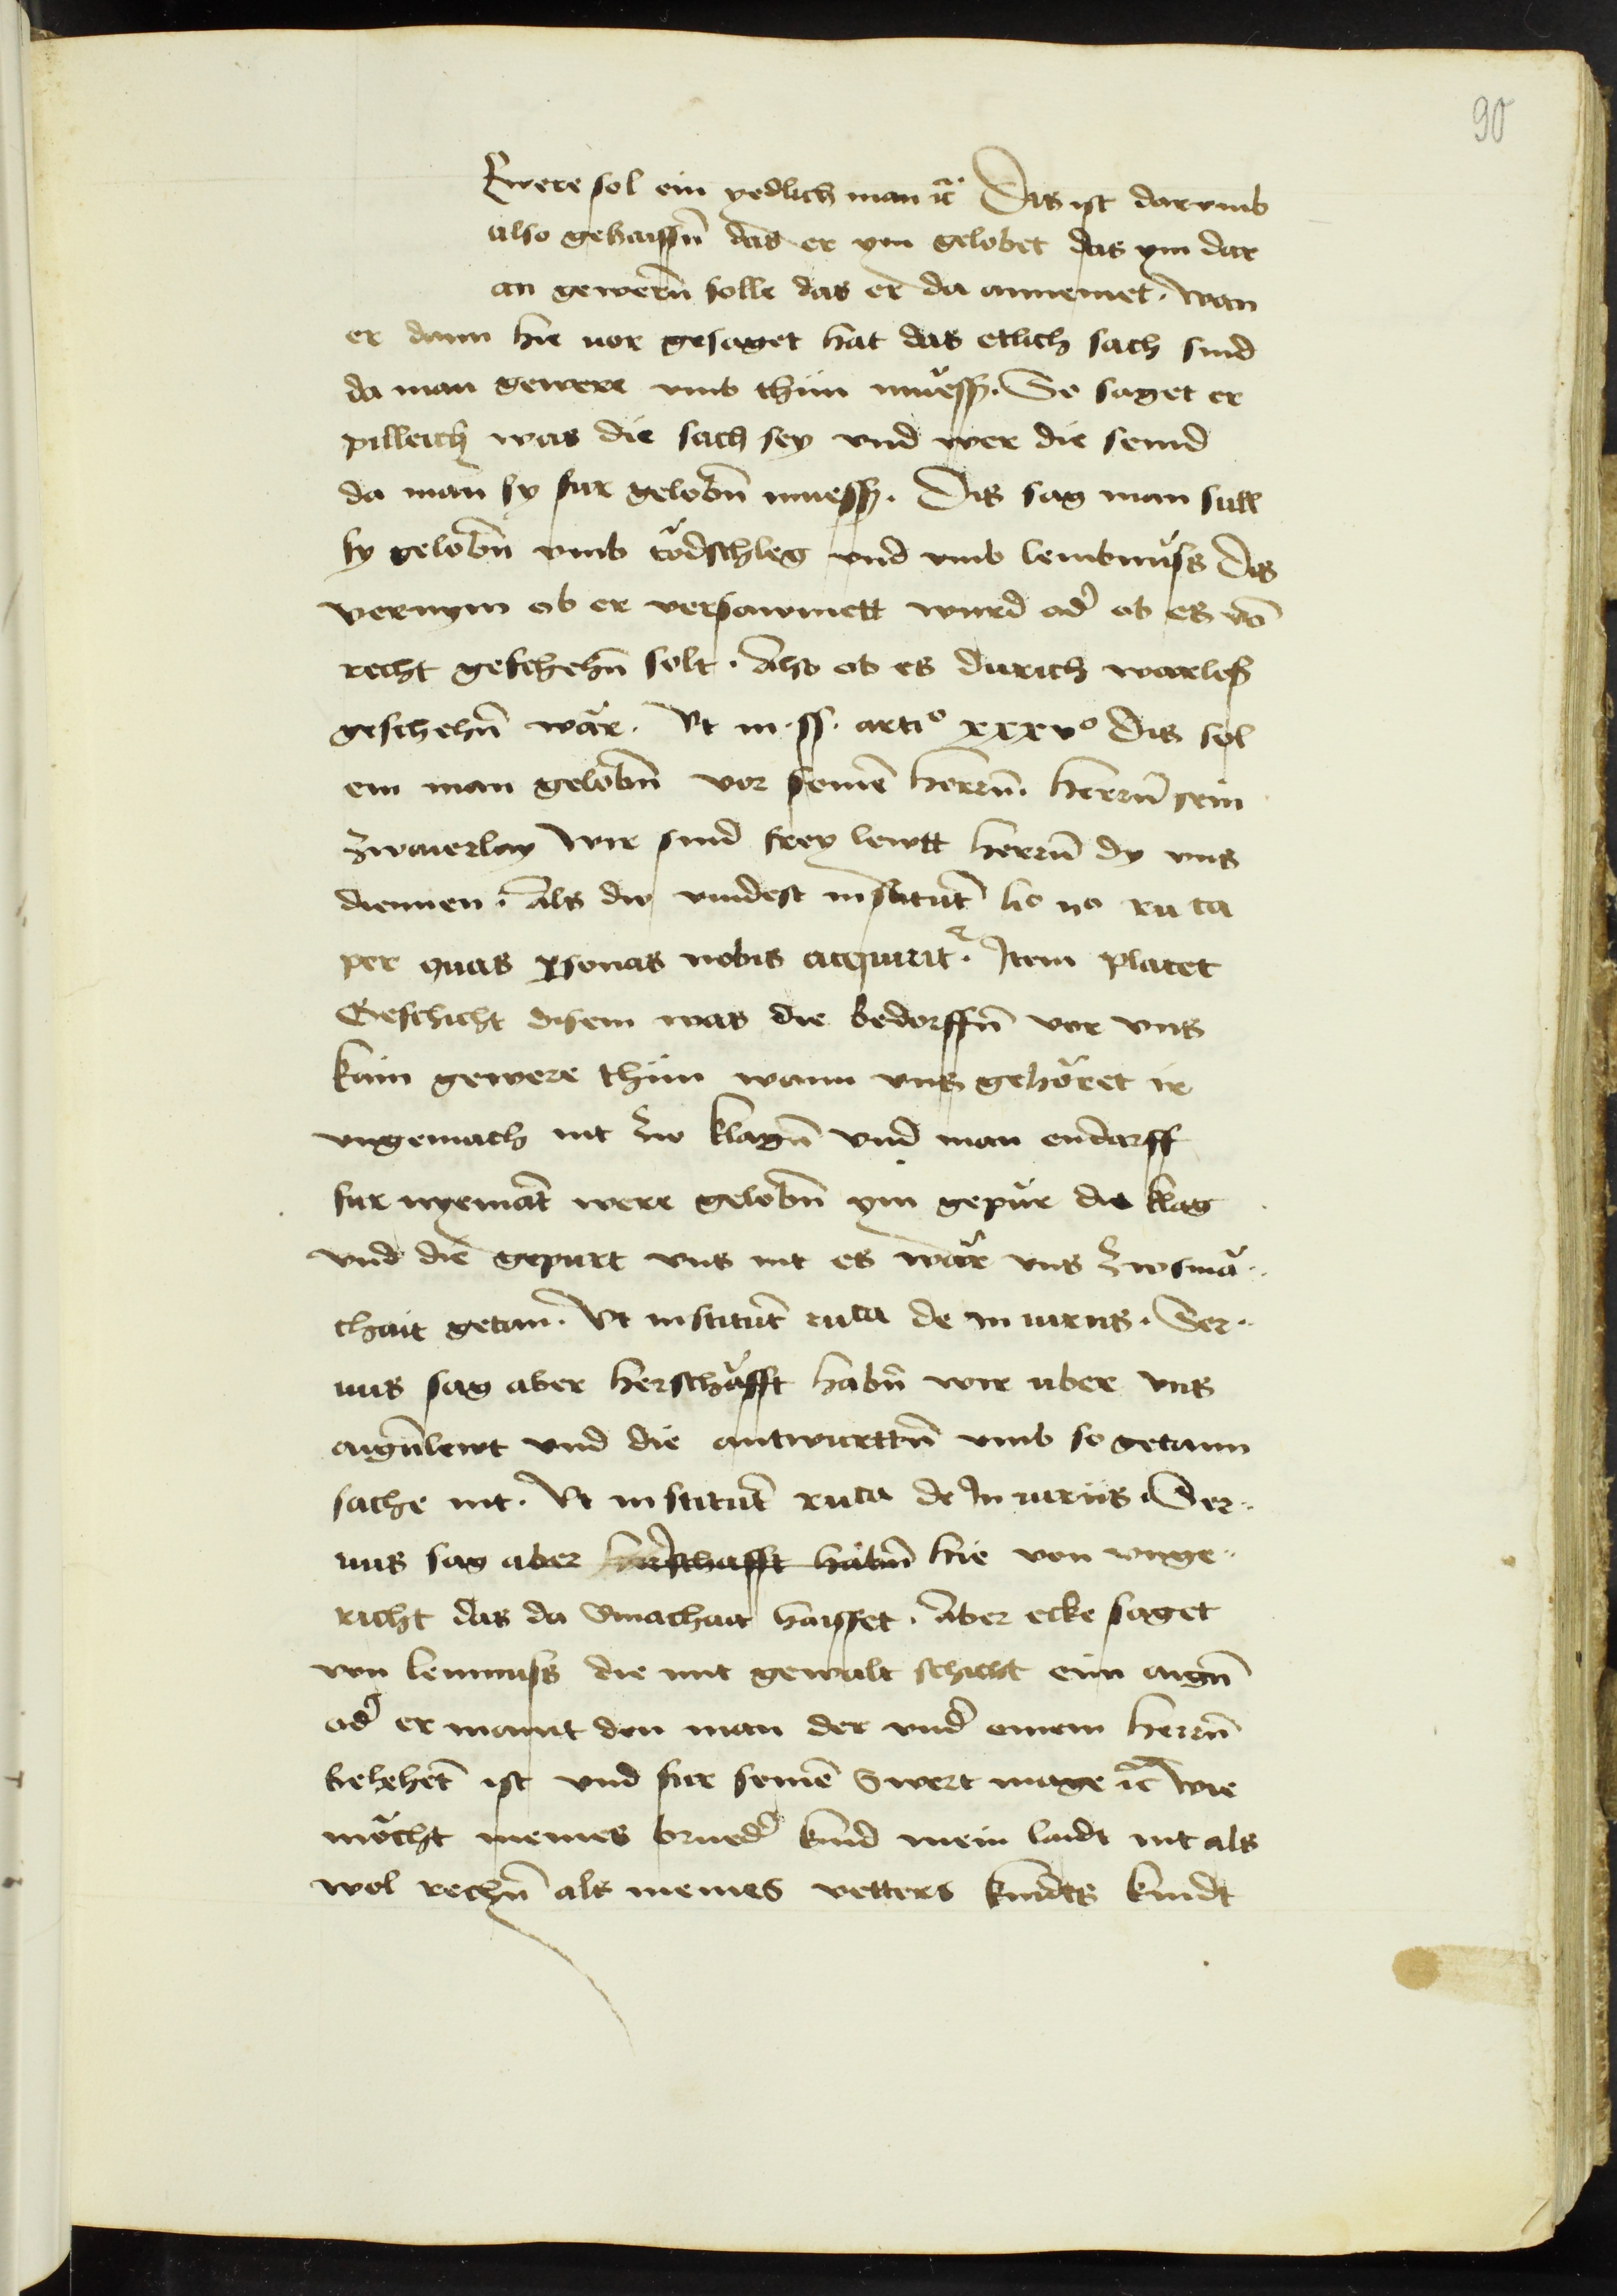 90
Ewere sol ein yedlich man ꝛc̄ Das ist darvmb
also gehaissn̄ das er ym gelobet das ym dar
an gewern̄ solle das er da annemet. wan
er dann hie uor gesaget hat das etlich sach sind
da man gewere vmb thün müess. So saget er
pilleich was die sach sey vnd wer die seind
da man sy fur gelobn̄ muess. Dis sag man sull
sy gelobn̄ vmb todschleg vnd vmb lembnuss Das
vernym ob er versawmett wurd od̄ ob es vō
recht geschehn̄ solt. Also ob es durich warloß
geschehn̄ wär. Vt in. ss. artiº xxxvº Dis sol
ein man gelobn̄ vor seinē herrn̄. herrn̄ sein
zwaierlay Wir sind frey lewtt herrn̄ dy vns
diennen. Als du vindest institut̄ lº nº ru ca
per quas psonas nobis acquirit̄. Item placet
Geschicht disem was die bedorffn̄ vor vns
kain gewere thün wann vns gehöret ir
vngemach nit zw klagn̄ vnd man endarff
fur nyemāt were gelobn̄ ym gepür die klag
vnd die gepurt vns nit es wär vns zw smä..
chait getan. Vt institut̄ ruca de in iuriis. Ser..
uus sag aber herschäfft habn̄ wir uber vns
aign̄lewt vnd die antwurttn̄ vmb so getann
sache nit. Vt institut̄ ruca de In iuriis. Ser..
uus sag aber herschafft habn̄ hie von vnge..
richt das da Smachait haisset. Aber ecke saget
von lemnuss die mit gewalt schicht ein aign̄
od̄ er maint den man der vnd̄ einem herrn̄
belehet̄ ist vnd fur seinē Swert mage ꝛc̄ Wie
möcht meines brued̄ kind mein laidt nit als
wol rechn̄ als meines vetters kindts kindt